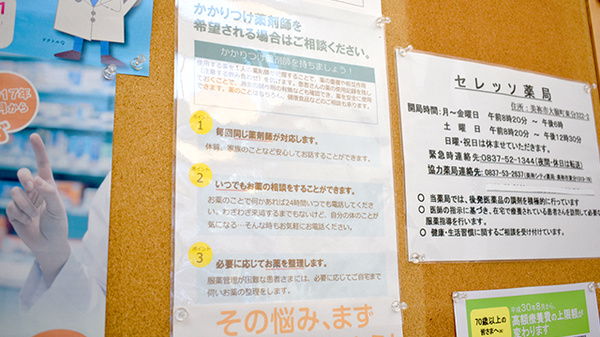 17年
月から
かかりつけ薬剤師を
希望される場合はご相談ください。
かかりつけ薬剤師を持ちましょう！
ポイント
1
毎回同じ薬剤師が対応します。
体質、家族のことなど安心してお話することができます。
ポイント
2
いつでもお薬の相談をすることができます。
お薬のことで何かあれば24時間いつでも電話してください。
わざわざ来局するまでもないけど、自分の体のことが
気になる…そんな時もお気軽にお電話ください。
ポイント
3
必要に応じてお薬を整理します。
服薬管理が困難な患者さまには、必要に応じてご自宅まで
伺いお薬の整理をします。
その悩み、まず
セレッソ薬局
住所：美祢市大嶺町東分
開局時間：月～金曜日 午前8時20分 ～ 午後6時
土 曜 日 午前8時20分 ～ 午後12時30分
日曜・祝日は休ませていただきます。
緊急時連絡先：0837-52-1344（夜間・休日は転送）
協力薬局連絡先：0837-53-2637
○ 当薬局では、後発医薬品の調剤を積極的に行っています
○ 医師の指示に基づき、在宅で療養されている患者さんを訪問して必要な
服薬指導を行います。
○ 健康・生活習慣に関するご相談を受け付けています。
70歳以上の
皆さまへ
平成30年8月から、
高額療養費の上限額が
変わります